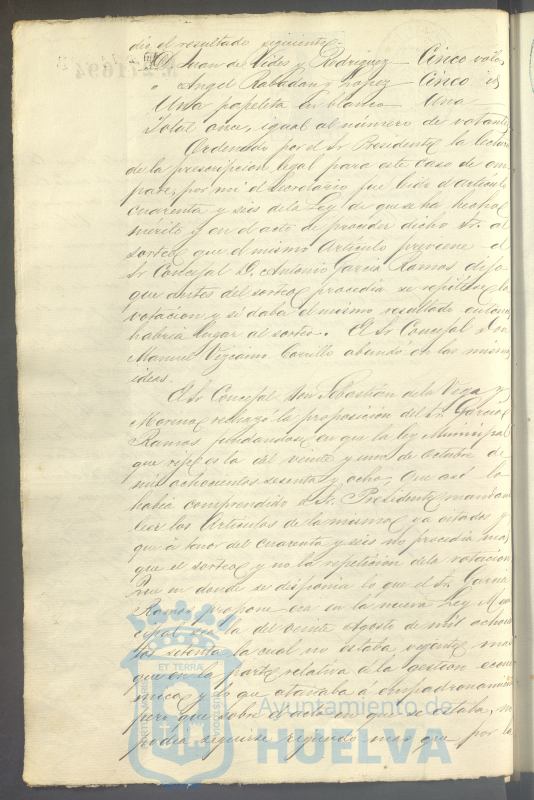 dió el resultado siguiente:
D. Juan de Vides y Rodriguez — Cinco votos
" Angel Rabadan y Lopez — Cinco id
Una papeleta en blanco — Una —
Total once, igual al número de votantes
Ordenado por el Sr Presidente la lectura
de la prescripcion legal para este caso de em
pate, por mi el Secretario fue leido el articulo
cuarenta y seis de la Ley de que se ha hecho
mérito y en el acto de proceder dicho Sr. al
sorteo que el mismo Articulo previene el
Sr Concejal D. Antonio Garcia Ramos dijo
que antes del sorteo procedia se repitiese la
votacion y si daba el mismo resultado entonces
habria lugar al sorteo. El Sr Concejal Don
Manuel Vizcaino Carrillo abundó en las mismas
ideas.
El Sr Concejal Don Sebastián de la Vega y
Moreno rechazó la proposicion del Sr. Garcia
Ramos fundandose en que la ley Municipal
que rije es la del veinte y uno de Octubre de
mil ochocientos sesenta y ocho, Que asi lo
habia comprendido el Sr. Presidente mandando
leer los Articulos de la misma ya citados y
que á tenor del cuarenta y seis no procedia mas
que el sorteo y no la repeticion de la votacion
Que en donde se disponia lo que el Sr. Garcia
Ramos propone era en la nueva Ley Mu
cipal en la del veinte Agosto de mil ochocien
tos setenta la cual no estaba vigente mas
que en la parte relativa á la gestion econo
mica y lo que atañia á empadronamiento
pero que sobre el acto en que se estaba, no
podia seguirse rigiendo mas que por la
ET TERRA
Ayuntamiento de
HUELVA